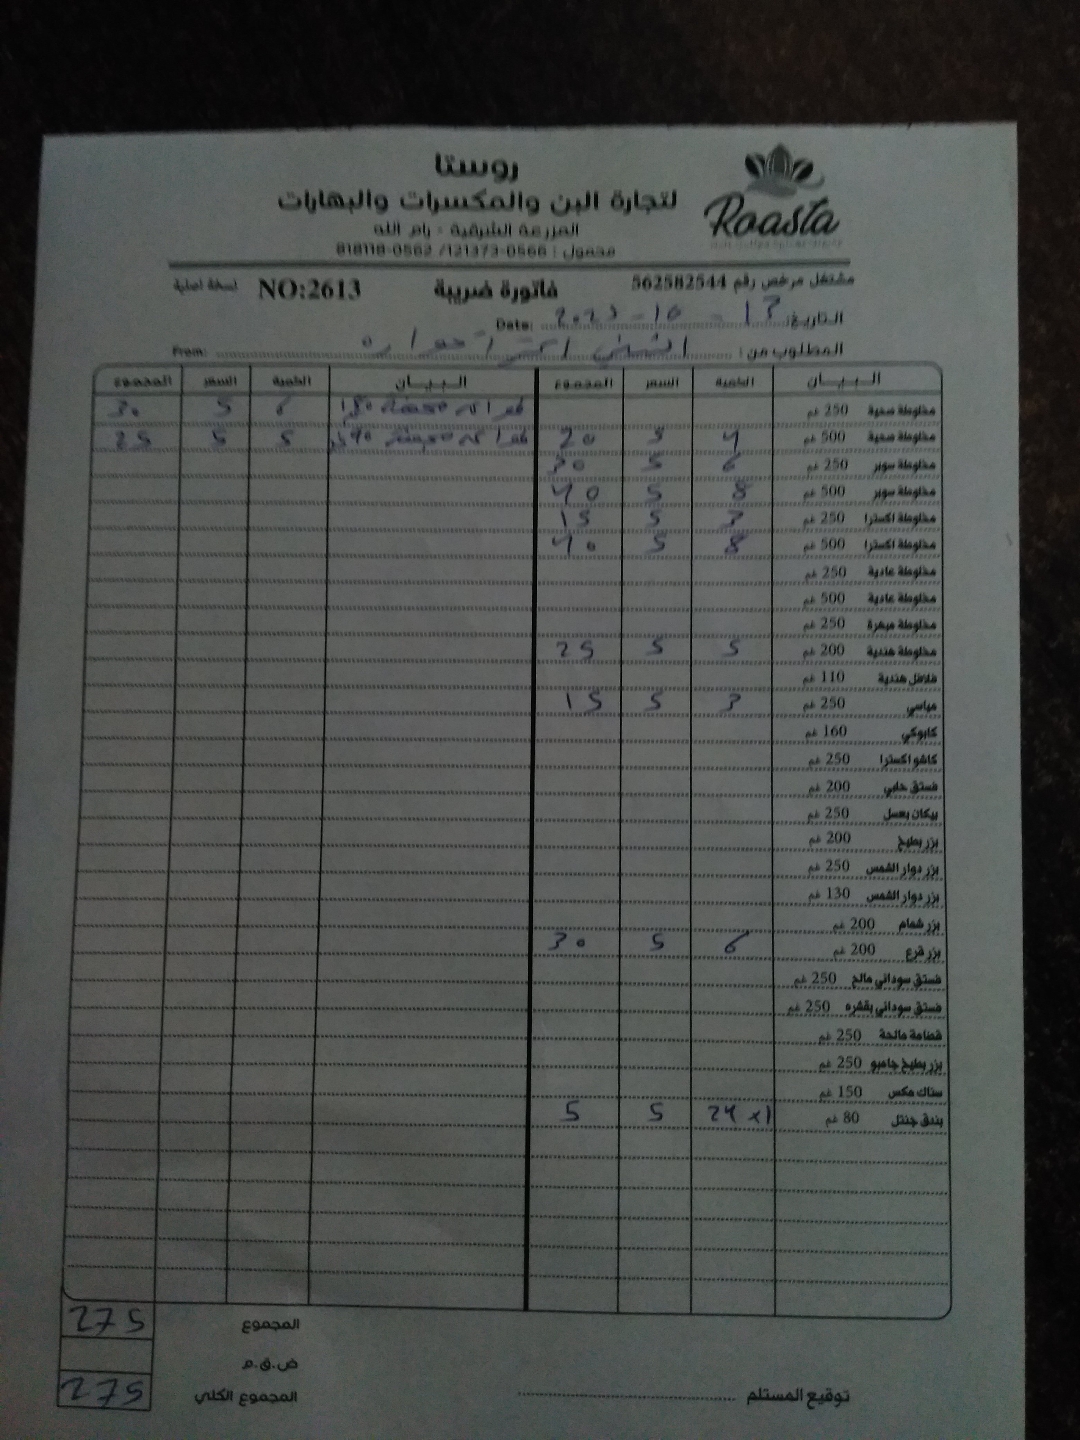 روستا
لتجارة البن والمكسرات والبهارات
المزرعة الشرقية - رام الله
محمول : 0566-121373/ 0562-818118
Roasta
مشتغل مرخص رقم 562582544
فاتورة ضريبة
NO:2613
نسخة اصلية
التاريخ: 13 - 10 - 2023 Date:
المطلوب من: From:
البيـــان الكمية السعر المجموع البيـــان الكمية السعر المجموع
مخلوطة صحية 250 غم 6 5 30
مخلوطة صحية 500 غم 4 5 20 5 5 25
مخلوطة سوبر 250 غم 6 5 30
مخلوطة سوبر 500 غم 8 5 40
مخلوطة اكسترا 250 غم 3 5 15
مخلوطة اكسترا 500 غم 8 5 40
مخلوطة عادية 250 غم
مخلوطة عادية 500 غم
مخلوطة مبهرة 250 غم
مخلوطة هندية 200 غم 5 5 25
فلافل هندية 110 غم
مياسي 250 غم 3 5 15
كابوكي 160 غم
كاشو اكسترا 250 غم
فستق حلبي 200 غم
بيكان بعسل 250 غم
بزر بطيخ 200 غم
بزر دوار الشمس 250 غم
بزر دوار الشمس 130 غم
بزر شمام 200 غم
بزر قرع 200 غم 6 5 30
فستق سوداني مالح 250 غم
فستق سوداني بقشره 250 غم
قضامة مالحة 250 غم
بزر بطيخ جامبو 250 غم
سناك مكس 150 غم
بندق جنتل 80 غم 24 x1 5 5
المجموع 275
ض.ق.م
المجموع الكلي 275
توقيع المستلم